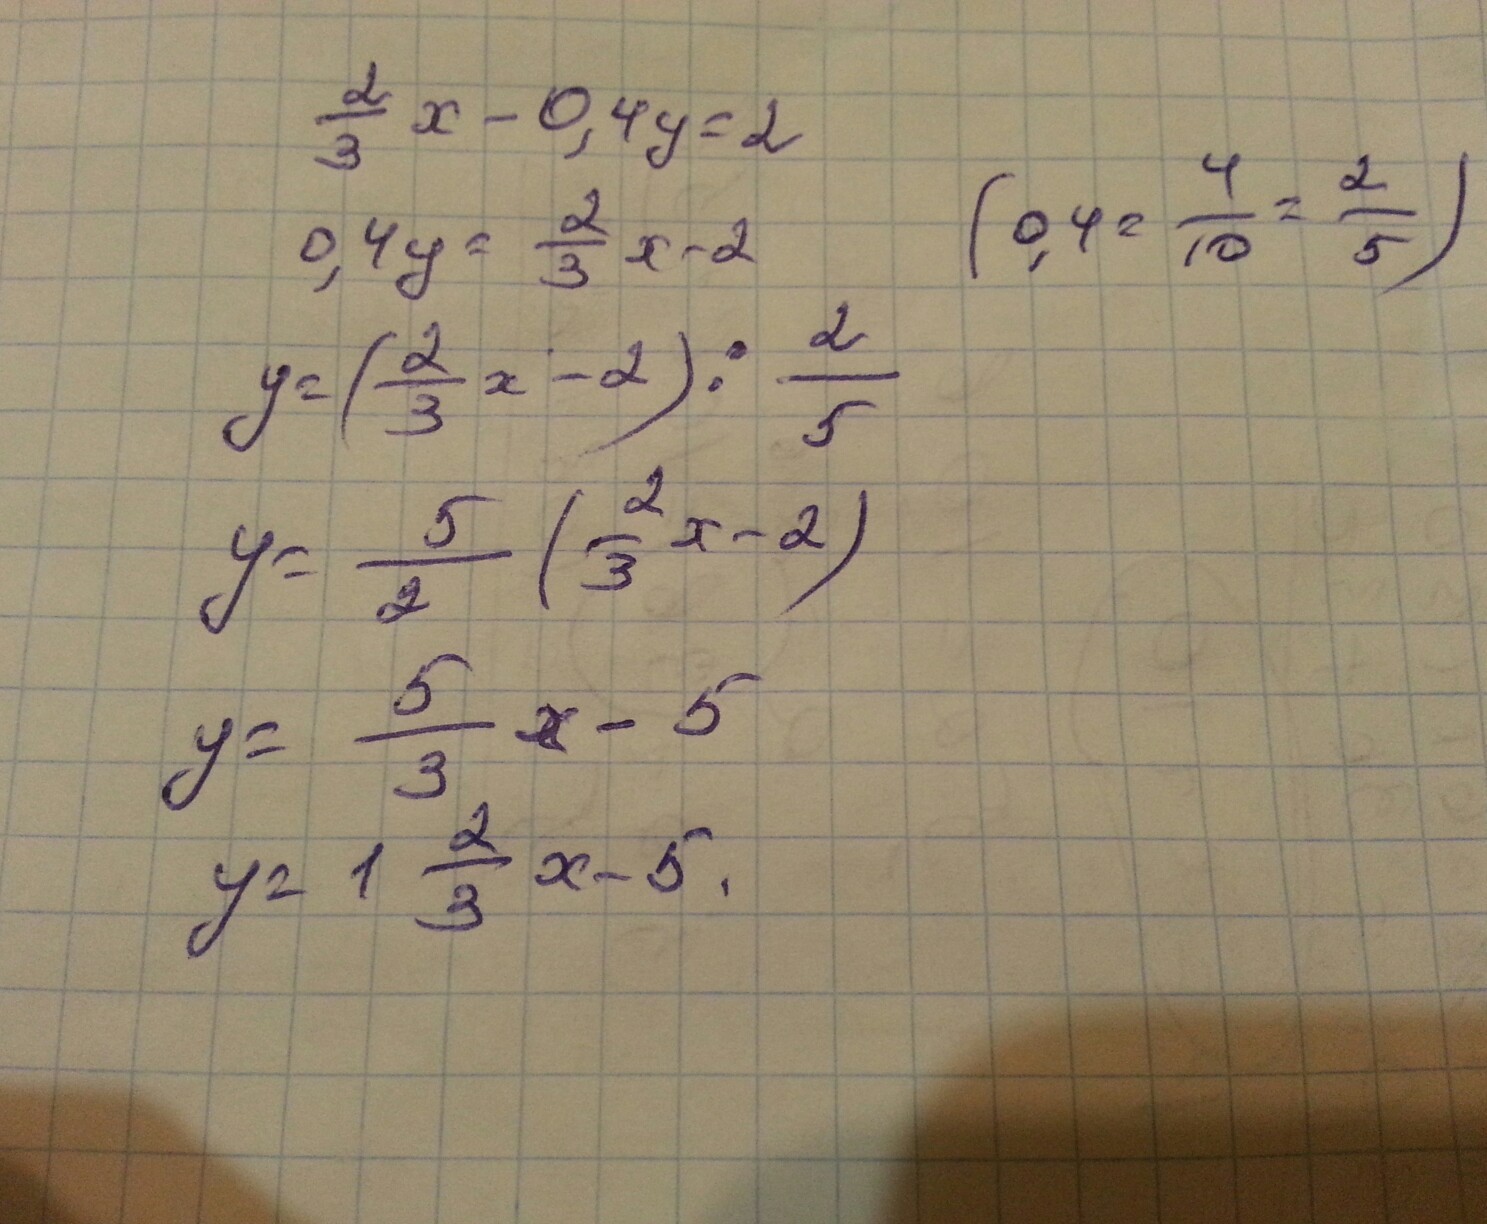 2/3 x - 0,4y = 2
0,4y = 2/3 x - 2 (0,4 = 4/10 = 2/5)
y = (2/3 x - 2) : 2/5
y = 5/2 (2/3 x - 2)
y = 5/3 x - 5
y = 1 2/3 x - 5.